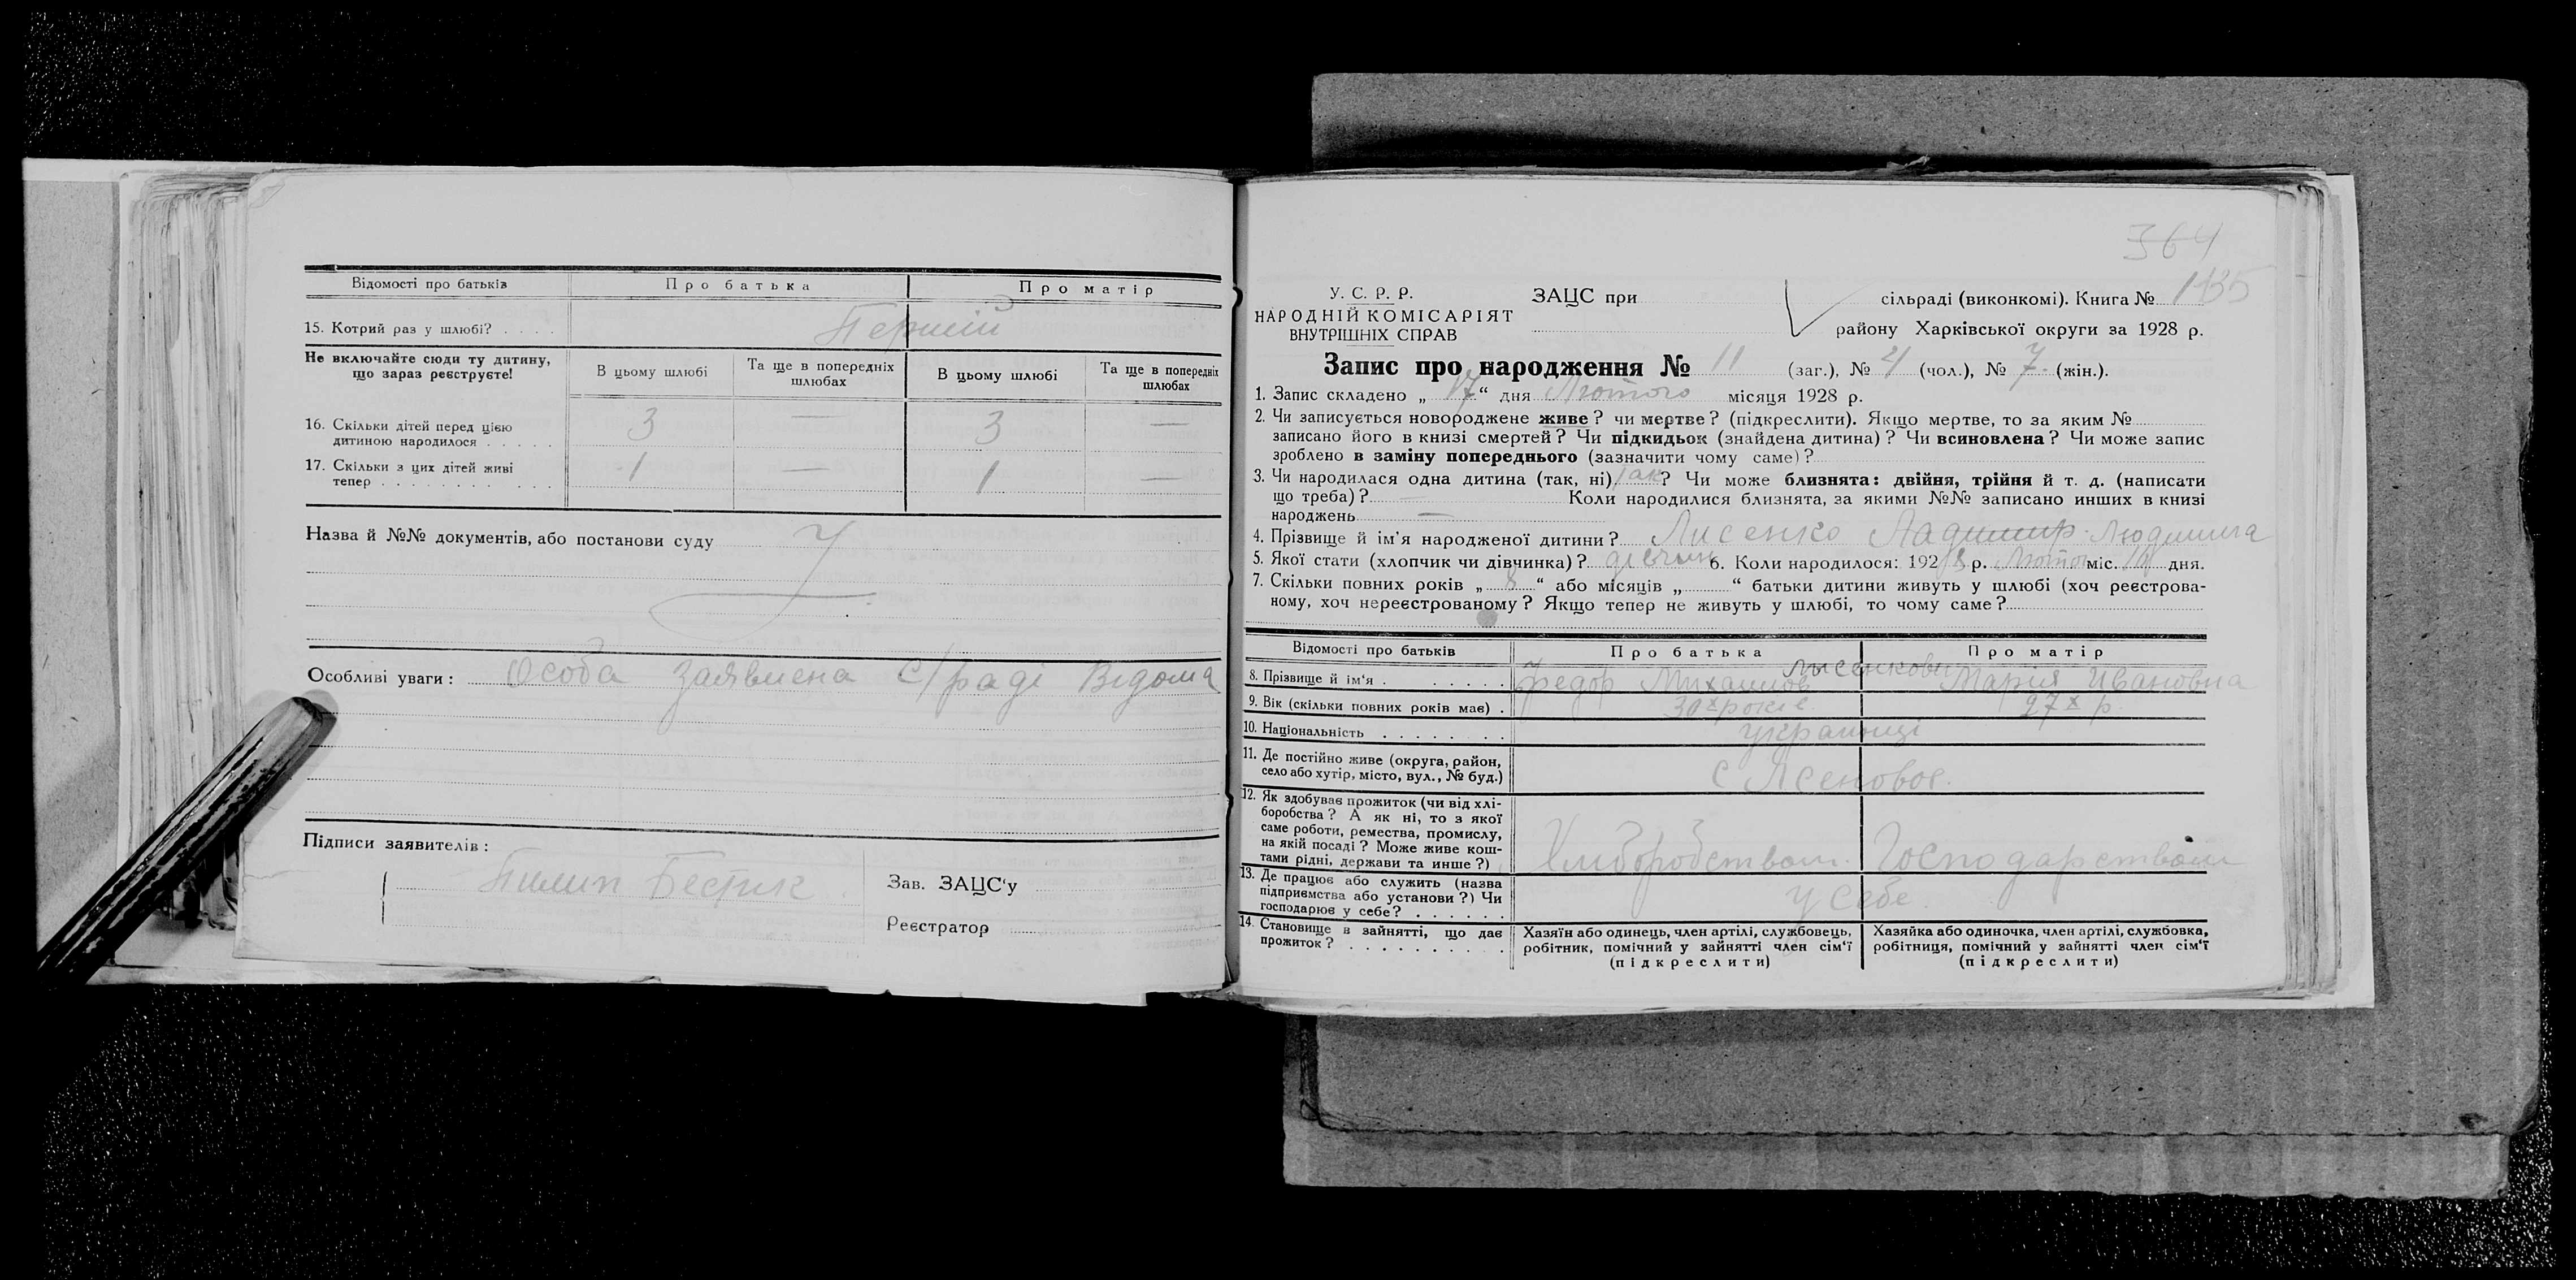 Відомості про батьків Про батька Про матір
15. Котрий раз у шлюбі? Перший
Не включайте сюди ту дитину, що зараз реєструєте! В цьому шлюбі Та ще в попередніх шлюбах В цьому шлюбі Та ще в попередніх шлюбах
16. Скільки дітей перед цією
дитиною народилося 3 — 3 —
17. Скільки з цих дітей живі
тепер 1 — 1 —
Назва й №№ документів, або постанови суду
Особливі уваги: Особа заявлена С/раді Відома
Підписи заявителів:
Пилип
Зав. ЗАЦС'у
Реєстратор
364
У. С. Р. Р. ЗАЦС при сільраді (виконкомі). Книга № 135
НАРОДНІЙ КОМІСАРІЯТ
ВНУТРІШНІХ СПРАВ району Харківської округи за 1928 р.
Запис про народження № 11 (заг.), № 4 (чол.), № 7. (жін.).
1. Запис складено „ 17 “ дня Лютого місяця 1928 р.
2. Чи записується новороджене живе? чи мертве? (підкреслити). Якщо мертве, то за яким №
записано його в книзі смертей? Чи підкидьок (знайдена дитина)? Чи всиновлена? Чи може запис
зроблено в заміну попереднього (зазначити чому саме)?
3. Чи народилася одна дитина (так, ні) так? Чи може близнята: двійня, трійня й т. д. (написати
що треба)? — Коли народилися близнята, за якими №№ записано инших в книзі
народжень —
4. Прізвище й ім'я народженої дитини? Лисенко Людмила
5. Якої стати (хлопчик чи дівчинка)? 6. Коли народилося: 1928 р. Лютого міс. дня.
7. Скільки повних років „ 8 “ або місяців „ “ батьки дитини живуть у шлюбі (хоч реєстрова-
ному, хоч нереєстрованому? Якщо тепер не живуть у шлюбі, то чому саме?
Відомості про батьків Про батька Про матір
Лисенкови
8. Прізвище й ім'я Федор Михаилов Марія Ивановна
9. Вік (скільки повних років має) 30х років 27х р.
10. Національність українці
11. Де постійно живе (округа, район,
село або хутір, місто, вул., № буд.) с
12. Як здобуває прожиток (чи від хлі-
боробства? А як ні, то з якої
саме роботи, ремества, промислу,
на якій посаді? Може живе кош-
тами рідні, держави та инше?) Хлиборобством. Господарством
13. Де працює або служить (назва
підприємства або установи?) Чи
господарює у себе? у себе
14. Становище в зайнятті, що дає
прожиток?
Хазяїн або одинець, член артілі, службовець,
робітник, помічний у зайнятті член сім'ї
(підкреслити)
Хазяйка або одиночка, член артілі, службовка,
робітниця, помічний у зайнятті член сім'ї
(підкреслити)